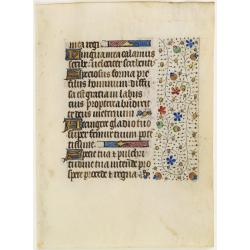 mea regi
Lingua mea calamus
scribe velociter scribentis
Speciosus forma pre
filiis hominum diffu
sa est gratia in labiis
tuis propterea benedixit
te deus in eternum
Accingere gladio tuo
super femur tuum poten
tissime
Specie tua et pulchri
tudine tua intende pro
spere procede et regna